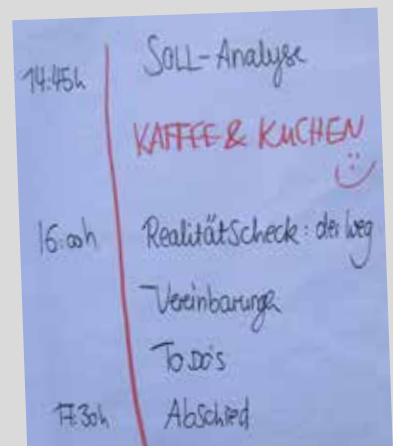 14:45h SOLL-Analyse
KAFFEE & KUCHEN
16:00h Realitätscheck: der Weg
Vereinbarungen
To Do's
17:30h Abschied